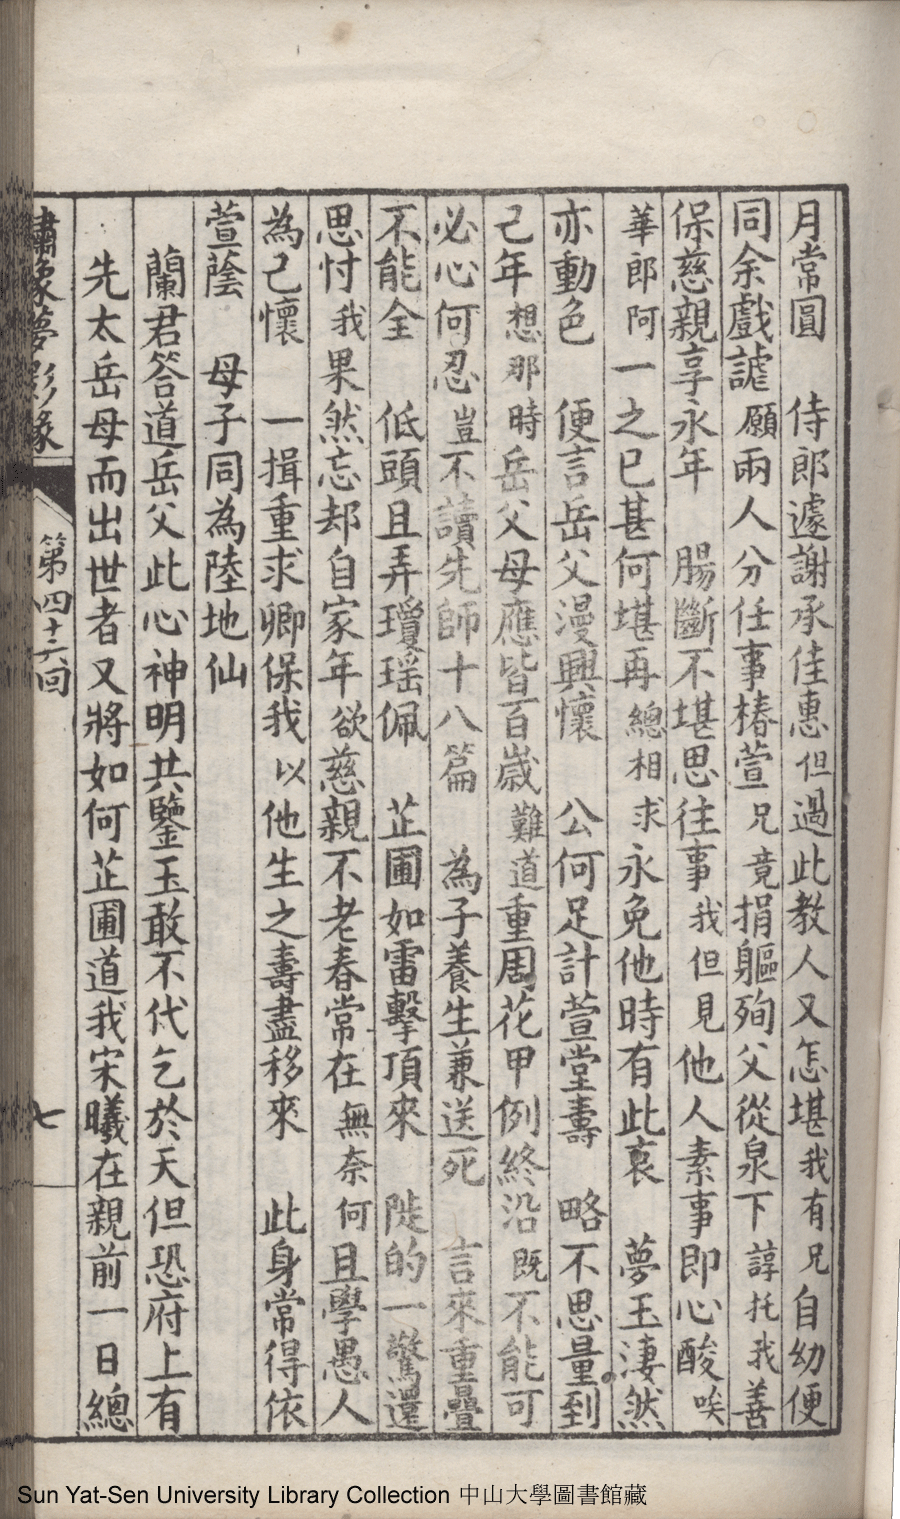 月常圓　侍郎遽謝承佳惠但過此教人又怎堪我有兄自幼便
同余戲謔願兩人分任事椿萱兄竟捐軀殉父從泉下諄托我善
保慈親享永年　腸斷不堪思往事我但見他人素事即心酸唉
華郎阿一之已甚何堪再總相求永免他時有此哀　夢玉淒然
亦動色　便言岳父漫興懷　公何足計萱堂壽　略不思量到
己年想那時岳父母應皆百歲難道重周花甲例終沿既不能可
必心何忍豈不讀先師十八篇　為子養生兼送死　言來重疊
不能全　低頭且弄瓊瑤佩　芷圃如雷擊頂來　陡的一驚還
思忖我果然忘却自家年欲慈親不老春常在無奈何且學愚人
為己懷　一揖重求卿保我以他生之壽盡移來　此身常得依
萱蔭　母子同為陸地仙
蘭君答道岳父此心神明共鑒玉敢不代乞於天但恐府上有
先太岳母而出世者又將如何芷圃道我宋曦在親前一日總
繡象夢影緣
第四十六回
七
Sun Yat-Sen University Library Collection 中山大學圖書館藏